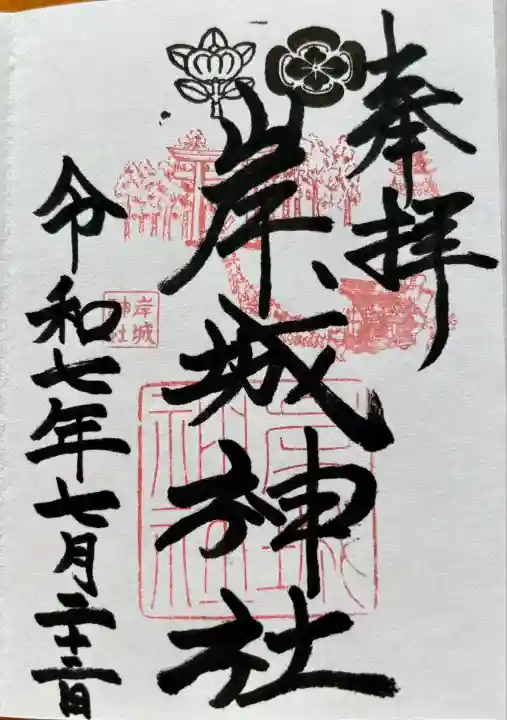 奉拝
岸城神社
岸城
神社
令和七年七月二十三日